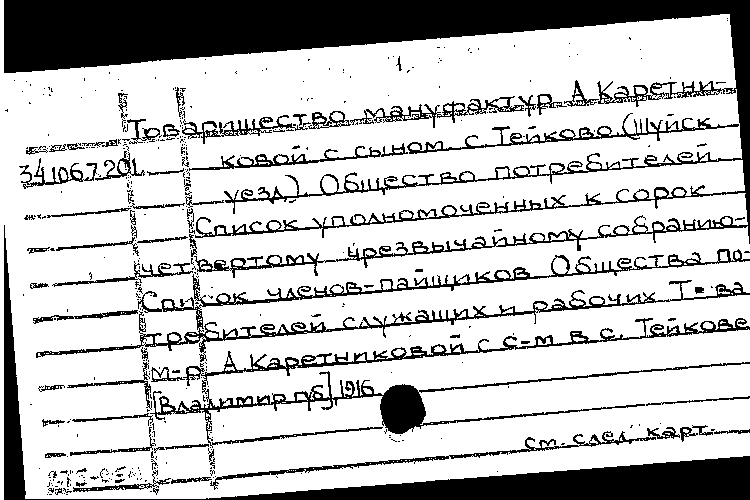 1.
Товарищество мануфактур А. Каретни-
34106.7.201. ковой с сыном. с. Тейково. (Шуйск.
уезд). Общество потребителей.
Список уполномоченных к сорок
четвертому чрезвычайному собранию-
Список членов-пайщиков Общества по-
требителей служащих и рабочих Т-ва
м-р А. Каретниковой с с-м в с. Тейкове
[Владимир. губ], 1916.
см. след. карт.